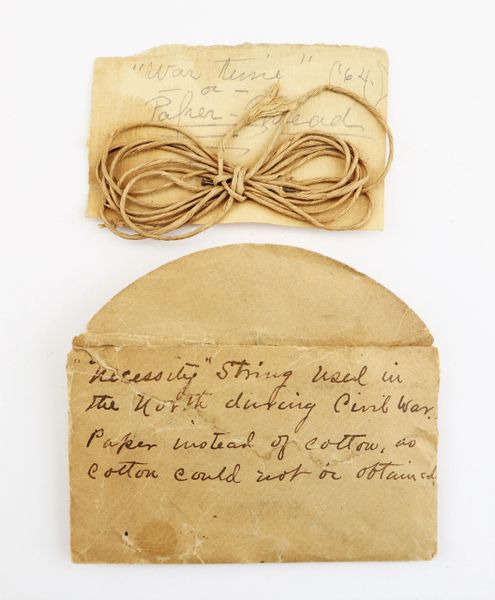 "War time" ('64.)
- or -
Paper - Thread
"Necessity" String used in
the North during Civil War.
Paper instead of cotton, as
cotton could not be obtained